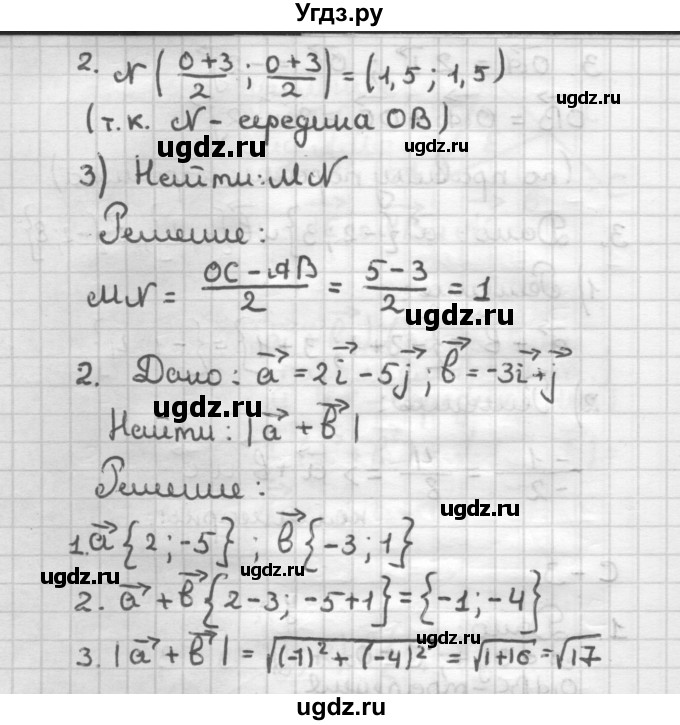 Угдз.ру
2. N ( (0+3)/2 ; (0+3)/2 ) = (1,5 ; 1,5)
ugdz.ru
(т.к. N - середина OB)
ugdz.ru
ugdz.ru
3) Найти: MN
Решение:
MN = (OC - AB)/2 = (5 - 3)/2 = 1
ugdz.ru
ugdz.ru
2. Дано: a⃗ = 2i⃗ - 5j⃗ ; b⃗ = -3i⃗ + j⃗
ugdz.ru
Найти: |a⃗ + b⃗|
ugdz.ru
Решение:
ugdz.ru
1. a⃗ {2 ; -5} ; b⃗ {-3 ; 1}
ugdz.ru
ugdz.ru
2. a⃗ + b⃗ {2 - 3; -5 + 1} = {-1; -4}
ugdz.ru
3. |a⃗ + b⃗| = √((-1)² + (-4)²) = √(1+16) = √17
ugdz.ru